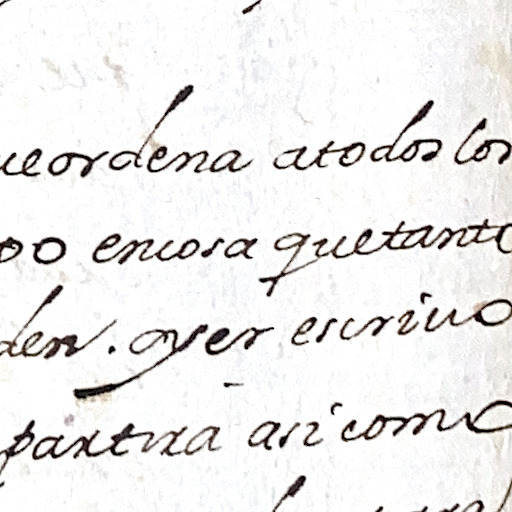 ueordena atodos los
po encosa quetanto
den. oyer escriuo
partira asi como